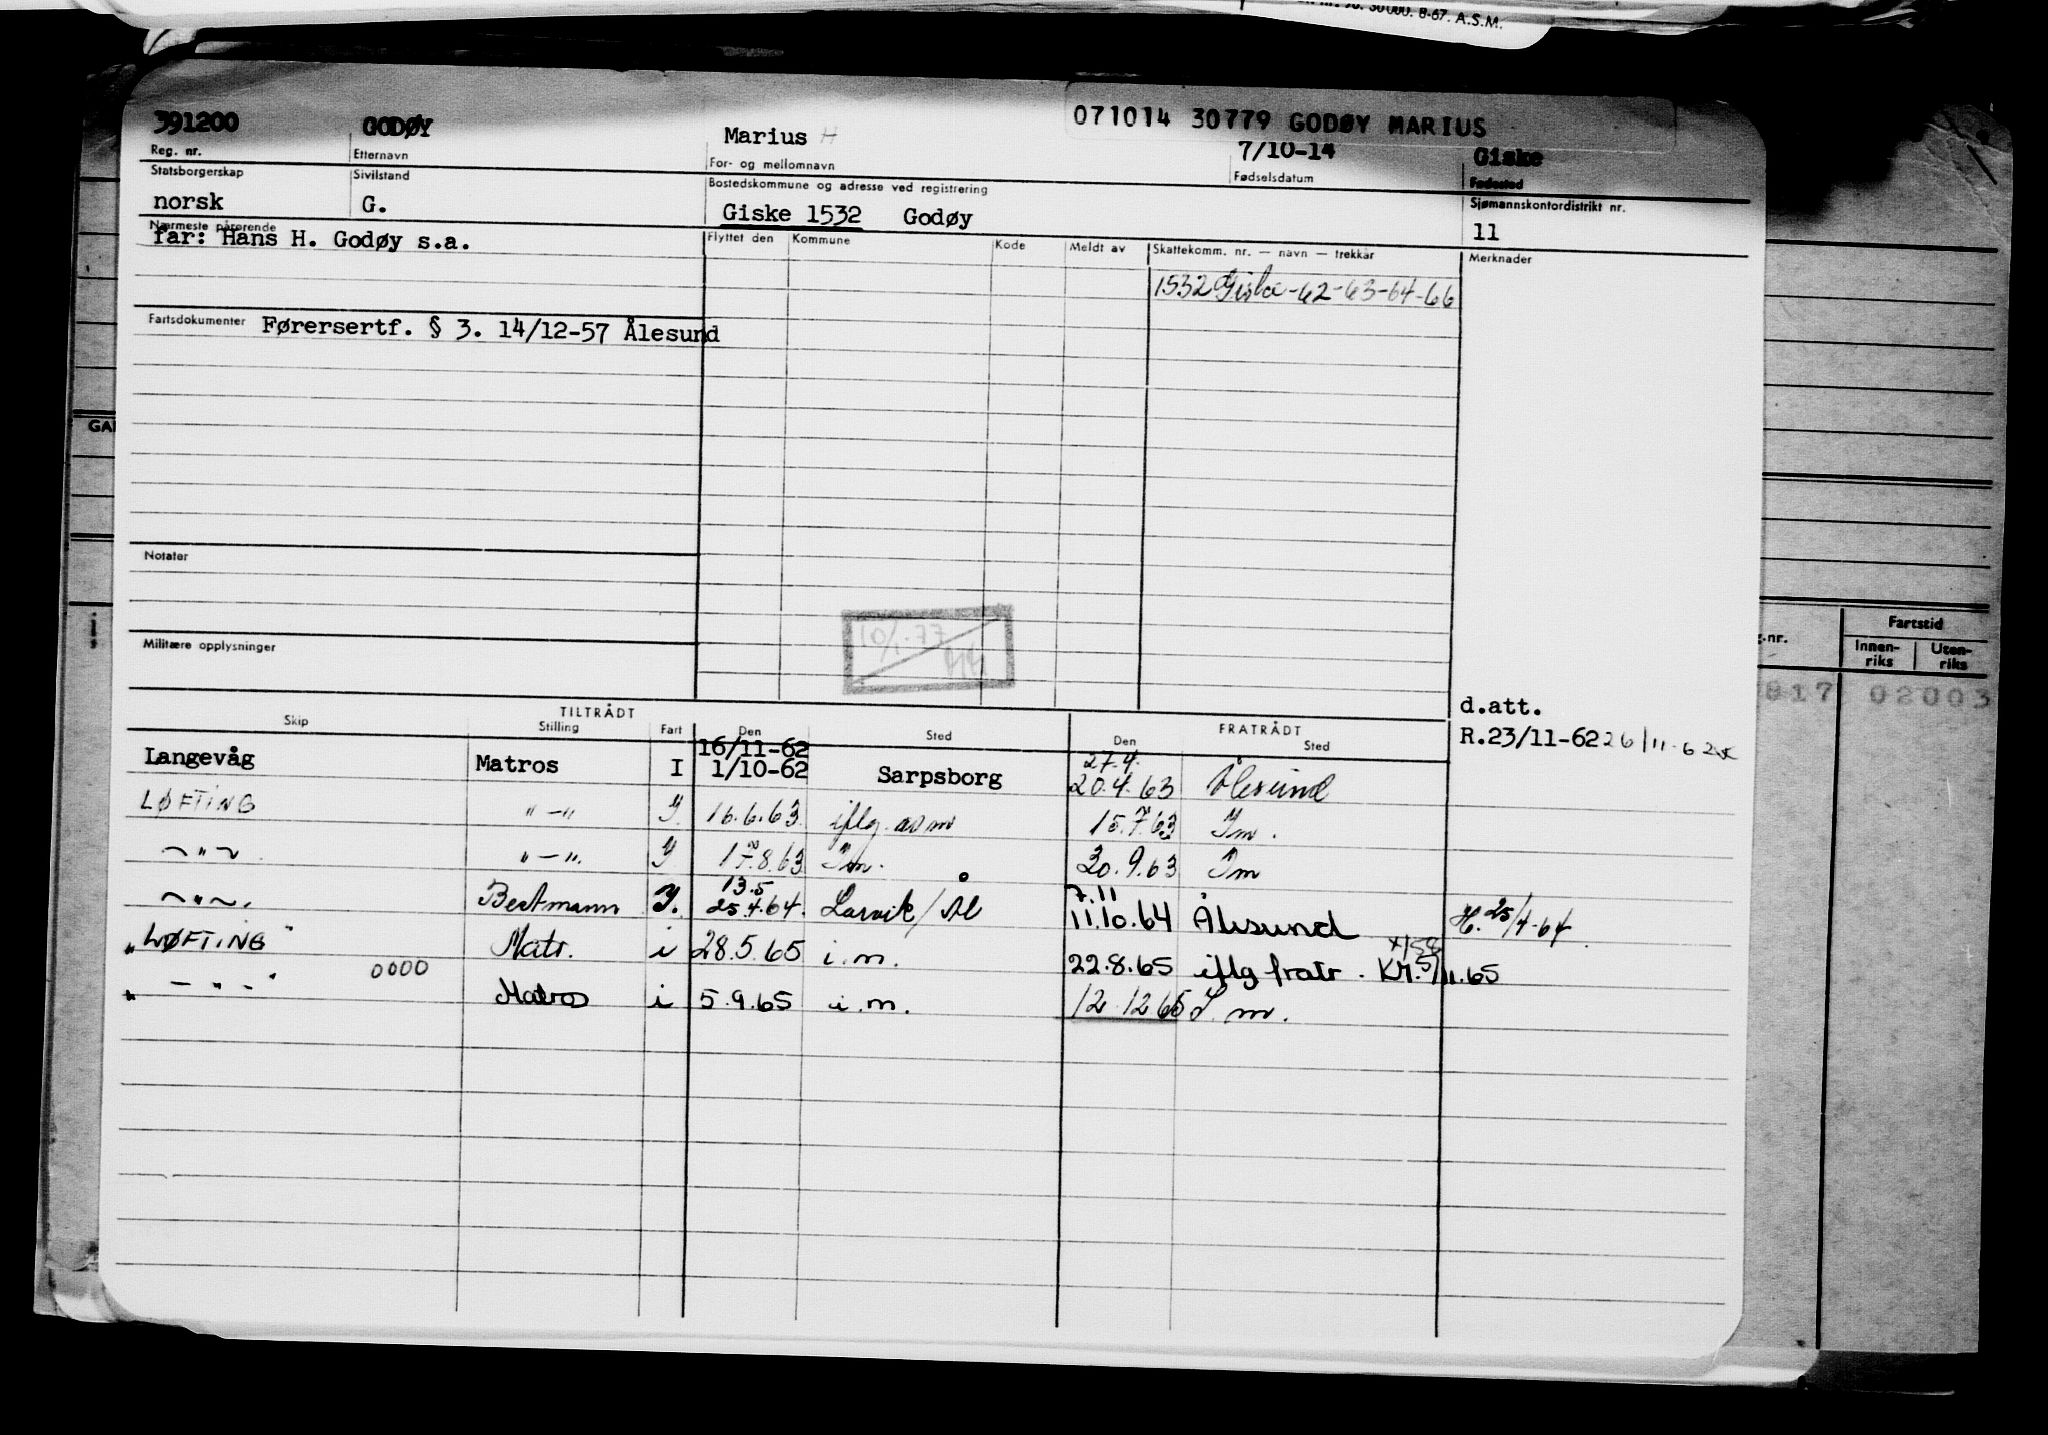 30000. 8-67. A.S.M.
071014 30779 GODØY MARIUS
391200 GODØY Marius H 7/10-14 Giske
Reg. nr. Etternavn For- og mellomnavn Fødselsdatum Fødested
Statsborgerskap Sivilstand Bostedskommune og adresse ved registrering Sjømannskontordistrikt nr.
norsk G. Giske 1532 Godøy 11
Nærmeste pårørende Flyttet den Kommune Kode Meldt av Skattekomm. nr. — navn — trekkår Merknader
far: Hans H. Godøy s.a.
1532 Giske-62-63-64-66
Fartsdokumenter Førersertf. § 3. 14/12-57 Ålesund
GAI
Notater
10/1-77
44
Militære opplysninger
Fartstid
g.nr. Innen-riks Uten-riks
817 02003
d.att.
TILTRÅDT FRATRÅDT
Skip Stilling Fart Den Sted Den Sted
R.23/11-62 26/11-62
16/11-62 27.4.
Langevåg Matros I 1/10-62 Sarpsborg 20.4.63 Ålesund
LØFTING "-" I. 16.6.63 iflg. avm 15.7.63 Im.
~"~ "-". I. 17.8.63 Im. 30.9.63 Im
13.5 7.11
~"~. Bestmann I. 25.4.64. Larvik/Ål 11.10.64 Ålesund H. 25/4-64
"LØFTING" Matr. i 28.5.65 i.m. 22.8.65 iflg fratr. KM.5/11.65
0000
" - " - " Matros i 5.9.65 i.m. 12.12.65 I.m.